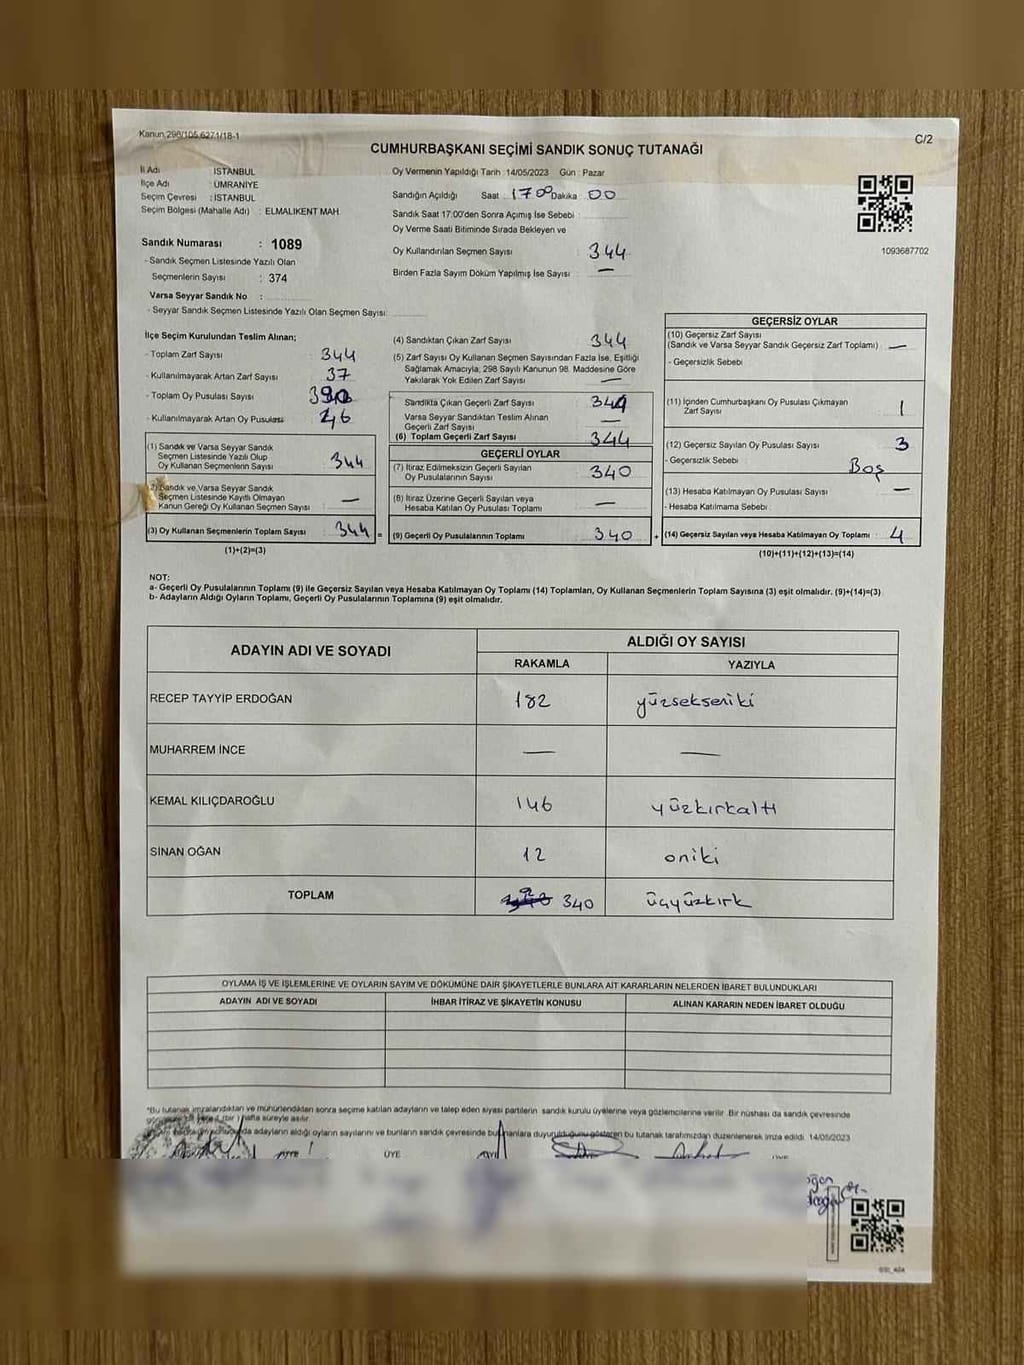 Kanun 298/105,6271/18-1
C/2
CUMHURBAŞKANI SEÇİMİ SANDIK SONUÇ TUTANAĞI
İl Adı : İSTANBUL
İlçe Adı : ÜMRANİYE
Seçim Çevresi : İSTANBUL
Seçim Bölgesi (Mahalle Adı) : ELMALIKENT MAH.
Sandık Numarası : 1089
- Sandık Seçmen Listesinde Yazılı Olan
Seçmenlerin Sayısı : 374
Varsa Seyyar Sandık No :
- Seyyar Sandık Seçmen Listesinde Yazılı Olan Seçmen Sayısı:
Oy Vermenin Yapıldığı Tarih : 14/05/2023 Gün : Pazar
Sandığın Açıldığı Saat : 17 00 Dakika : 00
Sandık Saat 17.00'den Sonra Açımış İse Sebebi :
Oy Verme Saati Bitiminde Sırada Bekleyen ve
Oy Kullandırılan Seçmen Sayısı : 344
Birden Fazla Sayım Döküm Yapılmış İse Sayısı : —
1093687702
İlçe Seçim Kurulundan Teslim Alınan;
- Toplam Zarf Sayısı : 344
- Kullanılmayarak Artan Zarf Sayısı : 37
- Toplam Oy Pusulası Sayısı :
- Kullanılmayarak Artan Oy Pusulası :
(1) Sandık ve Varsa Seyyar Sandık
Seçmen Listesinde Yazılı Olup
Oy Kullanan Seçmenlerin Sayısı : 344
(2) Sandık ve Varsa Seyyar Sandık
Seçmen Listesinde Kayıtlı Olmayan
Kanun Gereği Oy Kullanan Seçmen Sayısı : —
(3) Oy Kullanan Seçmenlerin Toplam Sayısı : 344 =
(1)+(2)=(3)
(4) Sandıktan Çıkan Zarf Sayısı : 344
(5) Zarf Sayısı Oy Kullanan Seçmen Sayısından Fazla İse, Eşitliği
Sağlamak Amacıyla, 298 Sayılı Kanunun 98. Maddesine Göre
Yakılarak Yok Edilen Zarf Sayısı : —
Sandıkta Çıkan Geçerli Zarf Sayısı : 344
Varsa Seyyar Sandıktan Teslim Alınan
Geçerli Zarf Sayısı : —
(6) Toplam Geçerli Zarf Sayısı : 344
GEÇERLİ OYLAR
(7) İtiraz Edilmeksizin Geçerli Sayılan
Oy Pusulalarının Sayısı : 340
(8) İtiraz Üzerine Geçerli Sayılan veya
Hesaba Katılan Oy Pusulası Toplamı : —
(9) Geçerli Oy Pusulalarının Toplamı : 340 +
GEÇERSİZ OYLAR
(10) Geçersiz Zarf Sayısı
(Sandık ve Varsa Seyyar Sandık Geçersiz Zarf Toplamı) : —
- Geçersizlik Sebebi :
(11) İçinden Cumhurbaşkanı Oy Pusulası Çıkmayan
Zarf Sayısı : 1
(12) Geçersiz Sayılan Oy Pusulası Sayısı : 3
- Geçersizlik Sebebi : Boş
(13) Hesaba Katılmayan Oy Pusulası Sayısı : —
- Hesaba Katılmama Sebebi :
(14) Geçersiz Sayılan veya Hesaba Katılmayan Oy Toplamı : 4
(10)+(11)+(12)+(13)=(14)
NOT:
a- Geçerli Oy Pusulalarının Toplamı (9) ile Geçersiz Sayılan veya Hesaba Katılmayan Oy Toplamı (14) Toplamları, Oy Kullanan Seçmenlerin Toplam Sayısına (3) eşit olmalıdır. (9)+(14)=(3)
b- Adayların Aldığı Oyların Toplamı, Geçerli Oy Pusulalarının Toplamına (9) eşit olmalıdır.
ADAYIN ADI VE SOYADI ALDIĞI OY SAYISI
RAKAMLA YAZIYLA
RECEP TAYYİP ERDOĞAN 182 yüzsekseniki
MUHARREM İNCE — —
KEMAL KILIÇDAROĞLU 146 yüzkırkaltı
SİNAN OĞAN 12 oniki
TOPLAM 340 üçyüzkırk
OYLAMA İŞ VE İŞLEMLERİNE VE OYLARIN SAYIM VE DÖKÜMÜNE DAİR ŞİKAYETLERLE BUNLARA AİT KARARLARIN NELERDEN İBARET BULUNDUKLARI
ADAYIN ADI VE SOYADI İHBAR İTİRAZ VE ŞİKAYETİN KONUSU ALINAN KARARIN NEDEN İBARET OLDUĞU
*Bu tutanak imzalandıktan ve mühürlendikten sonra seçime katılan adayların ve talep eden siyasi partilerin sandık kurulu üyelerine veya gözlemcilerine verilir. Bir nüshası da sandık çevresinde
hafta süreyle asılır.
da adayların aldığı oyların sayılarını ve bunların sandık çevresinde bulunanlara duyurulduğunu gösteren bu tutanak tarafımızdan düzenlenerek imza edildi. 14/05/2023
ÜYE